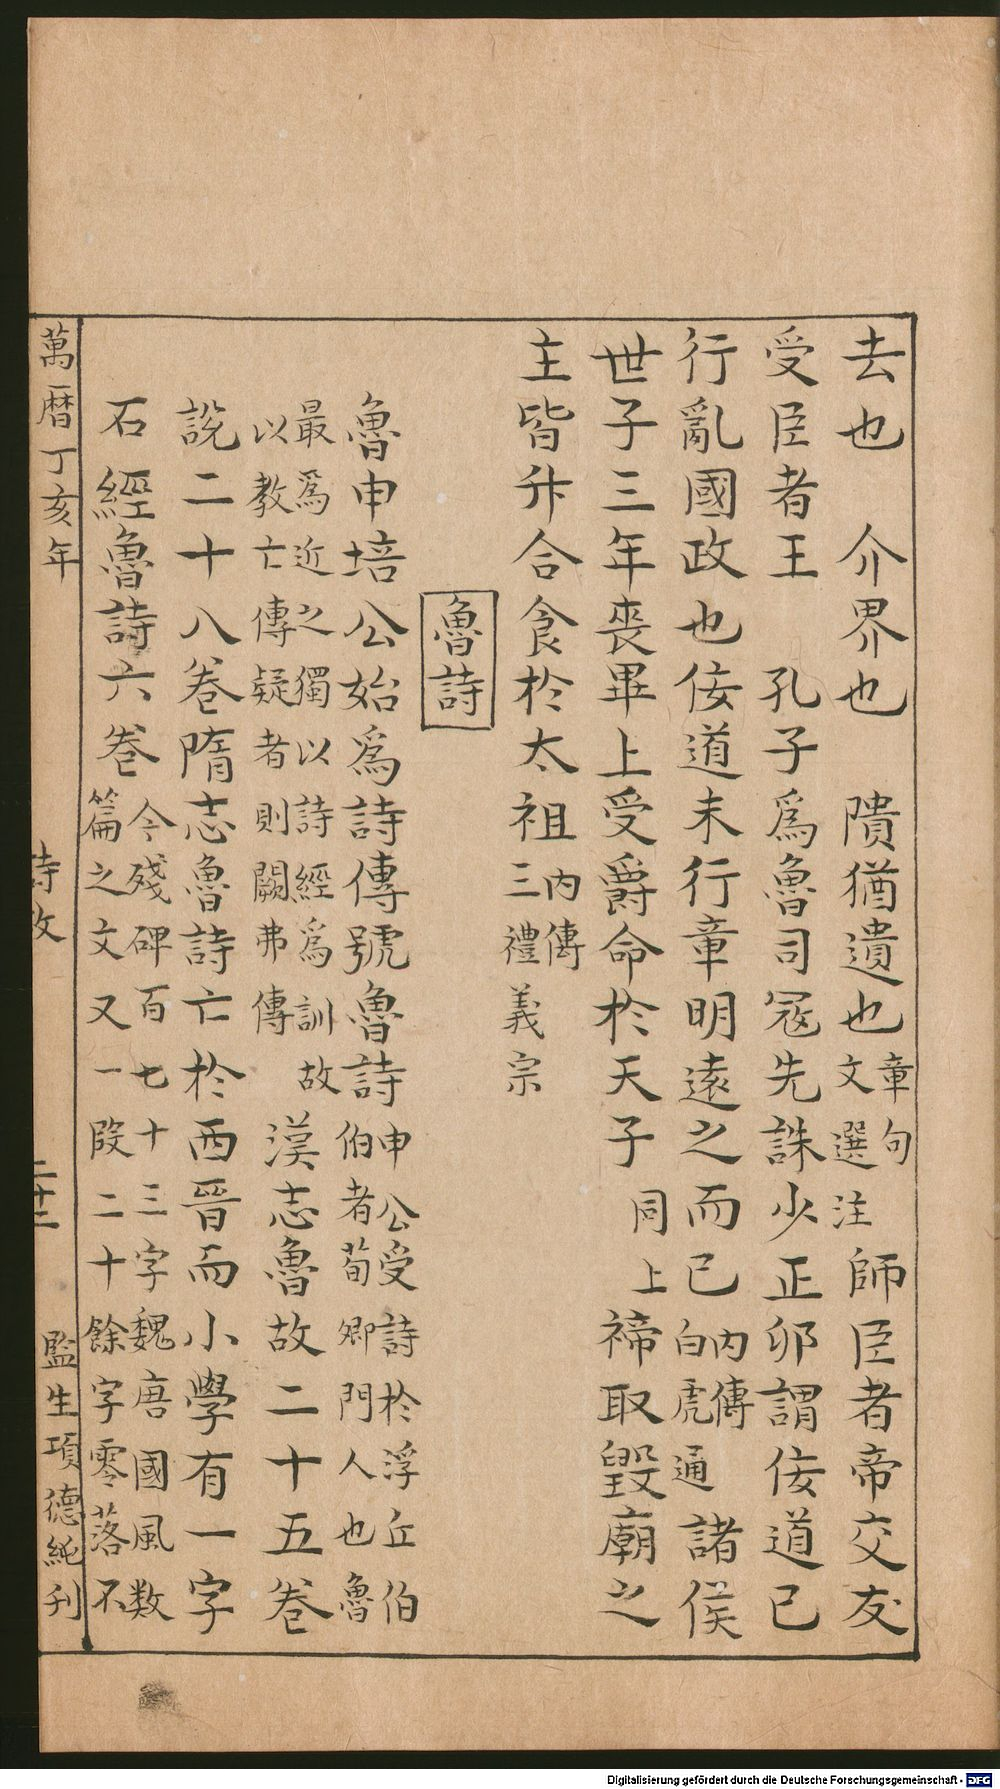 去也　介界也　隤猶遺也章句文選注師臣者帝交友
受臣者王　孔子爲魯司冦先誅少正卯謂佞道已
行亂國政也佞道未行章明遠之而已内傳白虎通諸侯
世子三年喪畢上受爵命於天子同上禘取毀廟之
主皆升合食於太祖内傳三禮義宗
魯詩
魯申培公始爲詩傳號魯詩申公受詩於浮丘伯伯者荀卿門人也魯
最爲近之獨以詩經爲訓故以教亡傳疑者則闕弗傳漢志魯故二十五卷
說二十八卷隋志魯詩亡於西晋而小學有一字
石經魯詩六卷今殘碑百七十三字魏唐國風数篇之文又一叚二十餘字零落不
萬暦丁亥年
詩攷
二十二
監生項德純刋
Digitalisierung gefördert durch die Deutsche Forschungsgemeinschaft - DFG